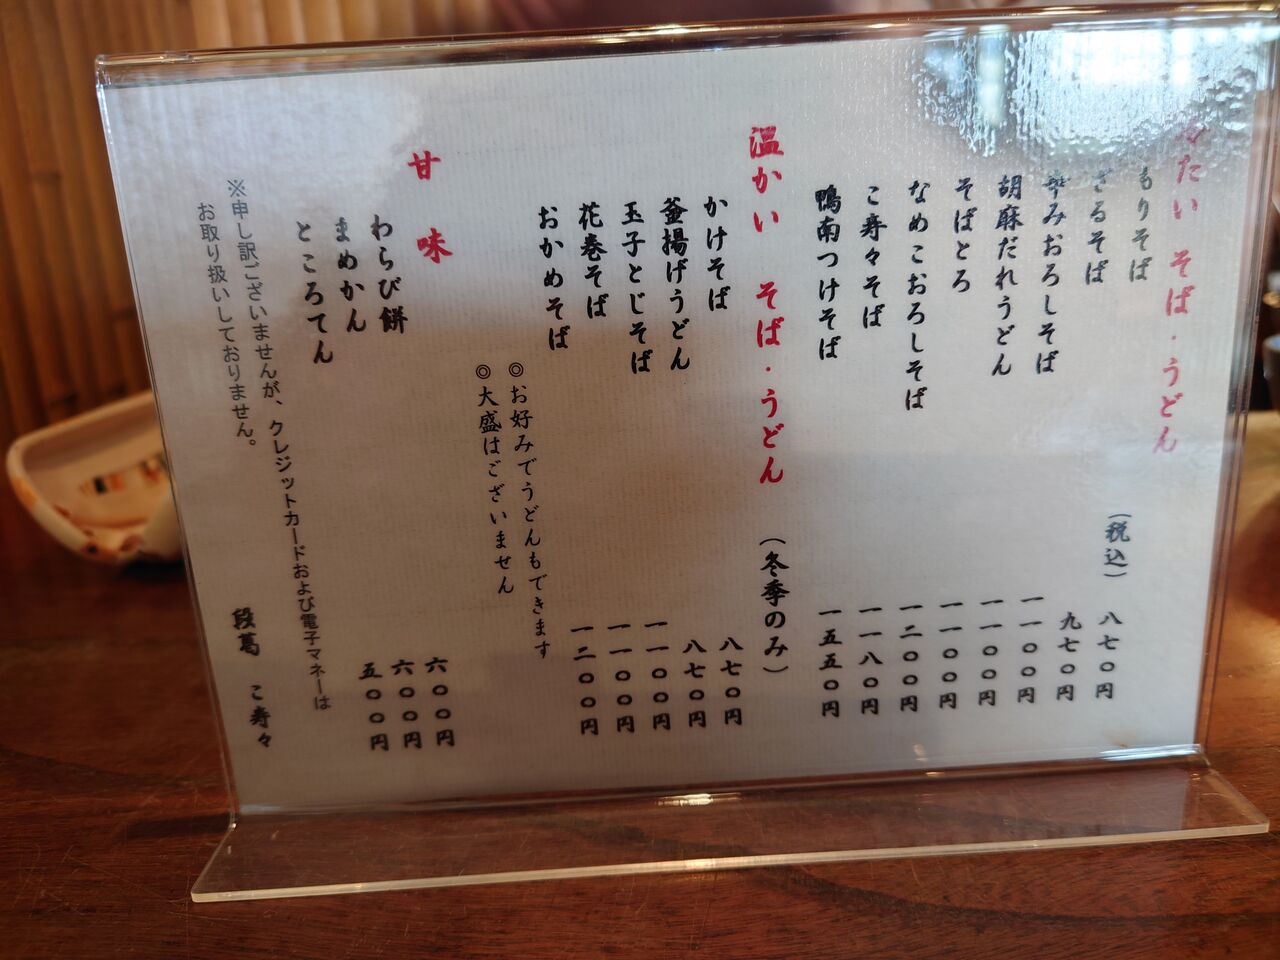 冷たい そば・うどん
(税込)
もりそば 八七〇円
ざるそば 九七〇円
辛みおろしそば 一一〇〇円
胡麻だれうどん 一一〇〇円
そばとろ 一一〇〇円
なめこおろしそば 一二〇〇円
こ寿々そば 一一八〇円
鴨南つけそば 一五五〇円
温かい そば・うどん (冬季のみ)
かけそば 八七〇円
釜揚げうどん 八七〇円
玉子とじそば 一一〇〇円
花巻そば 一一〇〇円
おかめそば 一二〇〇円
◎お好みでうどんもできます
◎大盛はございません
甘味
わらび餅 六〇〇円
まめかん 六〇〇円
ところてん 五〇〇円
※申し訳ございませんが、クレジットカードおよび電子マネーは
お取り扱いしておりません。
段葛 こ寿々